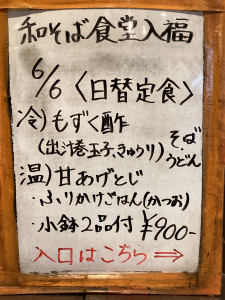 和そば食堂入福
6/6 〈日替定食〉
冷)もずく酢
(出汁巻玉子、きゅうり)
そば
うどん
温)甘あげとじ
・ふりかけごはん(かつお)
・小鉢2品付 ¥900-
入口はこちら⇒